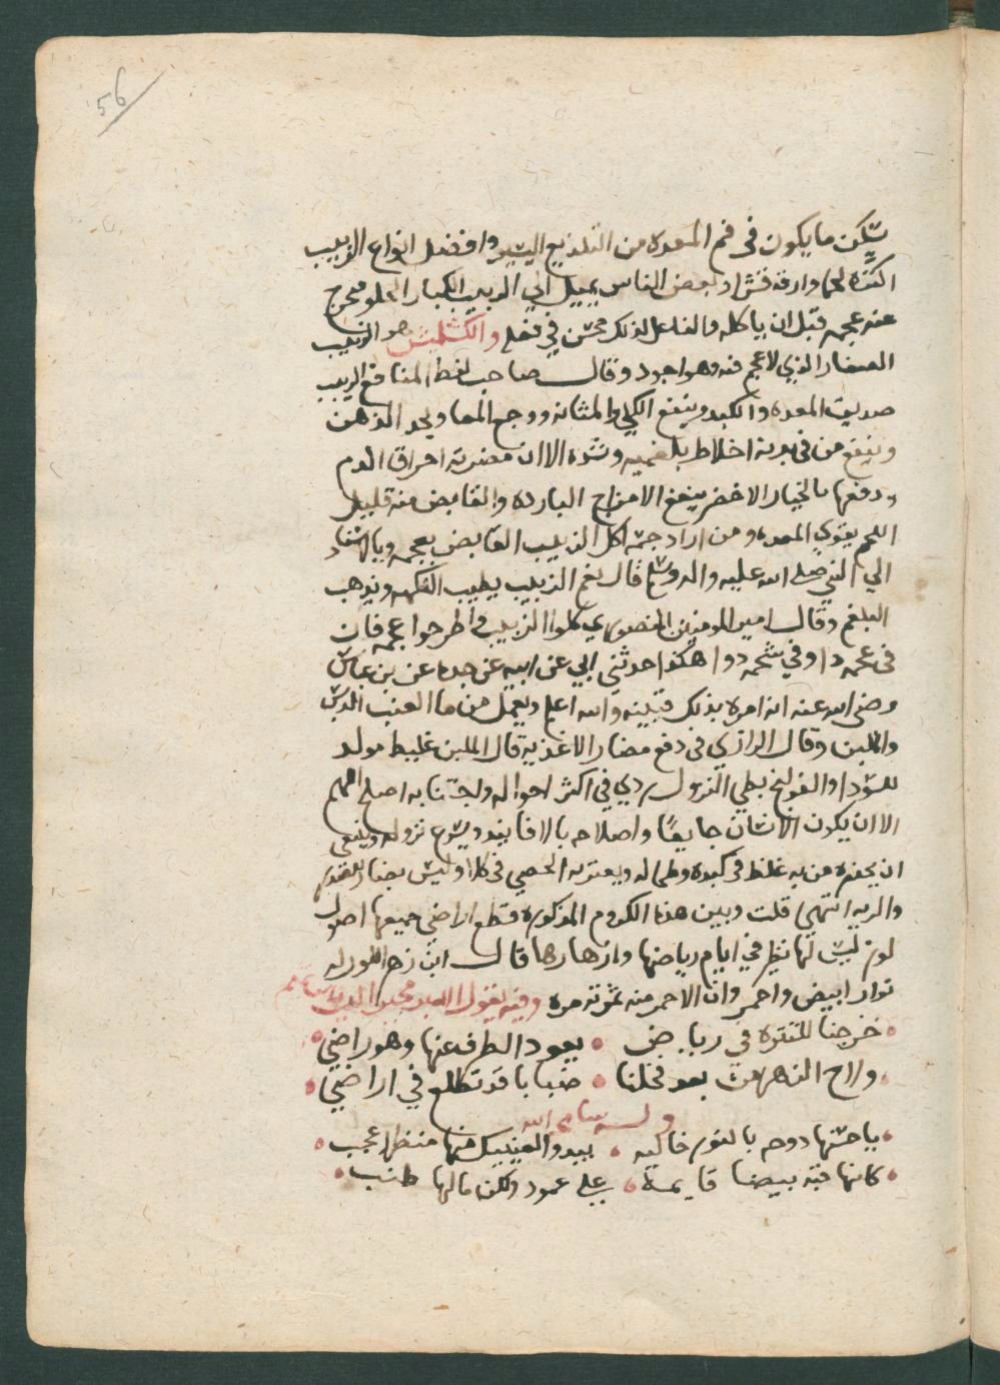 56
يسكن ما يكون في فم المعده من التلذيع اليسير وافضل انواع الزبيب
اكثره لحما وارقه قشرا وبعض الناس يميل الي الزبيب الكبار الحلو فيخرج
عنه عجمه قبل ان ياكله والفاعل لذلك محسن في فعله والكشمش هو الزبيب
الصغار الذي لا عجم فيه وهو اجود وقال صاحب لقط المنافع الزبيب
صديق المعده والكبد وينفع الكلي والمثانه ووجع المعا ويحد الذهن
وينفع من في بدنه اخلاط بلغميه الا ان مضرته احراق الدم
ودفعها بالخيار الاخضر ينفع الامزاج البارده والقابض منه قليل
اللحم يقوي المعده ومن اراد اكل الزبيب القابض بعجمه وبالاسناد
الي النبي صلى الله عليه واله وسلم قال نعم الزبيب يطيب النكهه ويذهب
البلغم وقال امير المومنين المنصور كلوا الزبيب واطرحوا عجمه فان
في عجمه دا وفي شحمه دوا هكذا حدثني ابي عن ابيه عن جده عن بن عباس
رضي الله عنه انه امره بذلك والله اعلم ويعمل من ما العنب الدبس
والملبن وقال الرازي في دفع مضار الاغذيه قال الملبن غليظ مولد
للسودا والقولنج بطي النزول ردي في اكثر احواله واجتنابه اصلح
الا ان يكون الانسان جايعا واصلاحه بالافاويه ويسرع نزوله وينبغي
ان يحذره من به غلظ في كبده وطحاله ويعتريه الحصي في كلاه وليس بضار للصدر
والريه انتهي قلت وبين هذا الكروم المذكوره قطع اراضي جميعها اصول
لوز ليس لها نظير في ايام رياضها وازهارها قال ابن زهر اللوز له
نوار ابيض واحمر وان الاحمر منه ثمرته مره وفيه يقول مجير الدين بن تميم
خرجنا للتنزه في رياض • يعود الطرف عنها وهو راضي
ولاح الزهر من بعد فخلنا • ضبابا قد تطلع في اراضي
وله سامحه الله
يا حسنها دوحه بالنور حاليه • يبدو لعينيك منها منظر عجب
كانها قبه بيضا قايمة • على عمود ولكن ما لها طنب